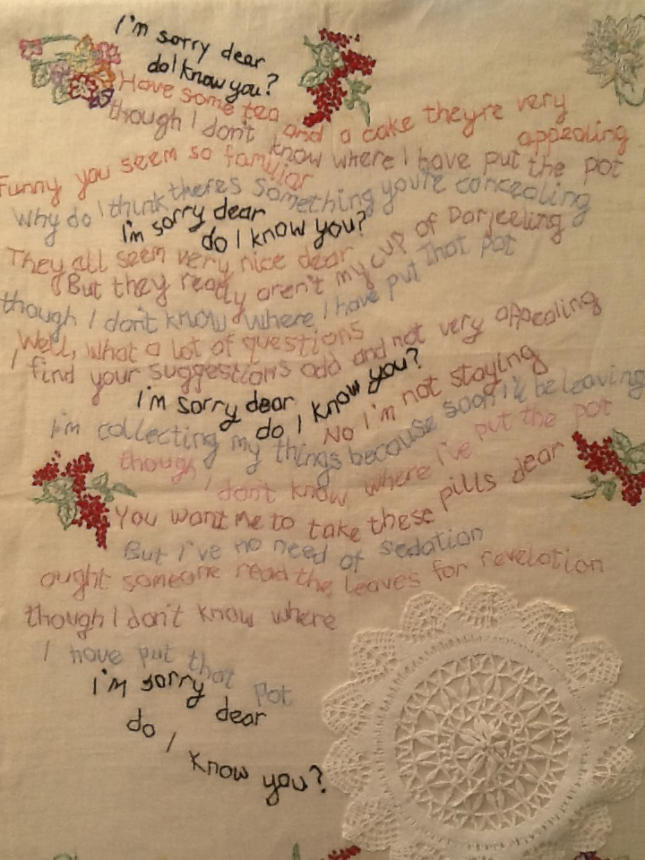 I'm sorry dear
do I know you?
Have some tea and a cake theyre very appealing
though I don't know where I have put the pot
Funny you seem so familiar
Why do I think theres something you're concealing
I'm sorry dear
do I know you?
They all seem very nice dear
But they really aren't my cup of Darjeeling
though I don't know where I have put that pot
Well, what a lot of questions
I find your suggestions odd and not very appealing
I'm sorry dear
do I know you?
No I'm not staying
I'm collecting my things because soon I'll be leaving
though I don't know where I've put the pot
You want me to take these pills dear
But I've no need of sedation
ought someone read the leaves for revelation
though I don't know where
I have put that pot
I'm sorry dear
do I
know you?